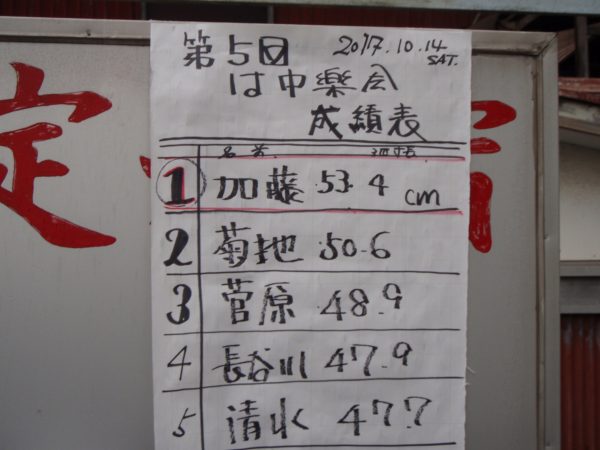 第5回 2017.10.14
SAT.
は中楽会
成績表
名前
1 加藤 53.4 cm
2 菊地 50.6
3 菅原 48.9
4 長谷川 47.9
5 清水 47.7
定